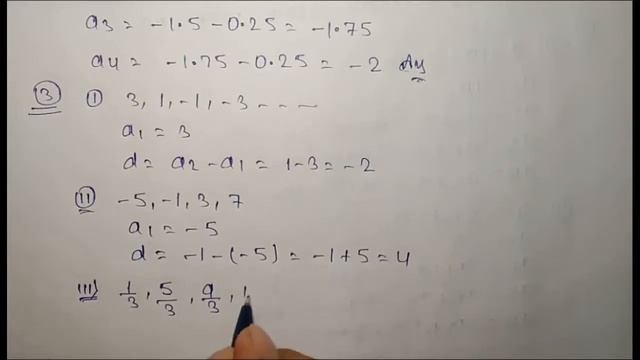 a3 = -1.5 - 0.25 = -1.75
a4 = -1.75 - 0.25 = -2 Ans
③ ⓘ 3, 1, -1, -3 - - - -
a1 = 3
d = a2 - a1 = 1 - 3 = -2
(ii) -5, -1, 3, 7
a1 = -5
d = -1 - (-5) = -1 + 5 = 4
iii) 1/3, 5/3, 9/3, 1